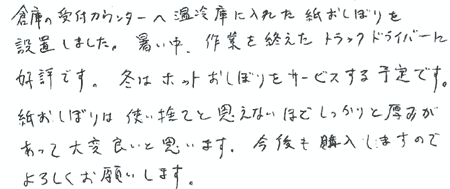 倉庫の受付カウンターへ温冷庫に入れた紙おしぼりを
設置しました。暑い中、作業を終えたトラックドライバーに
好評です。冬はホットおしぼりをサービスする予定です。
紙おしぼりは使い捨てと思えないほどしっかりと厚みが
あって大変良いと思います。今後も購入しますので
よろしくお願いします。